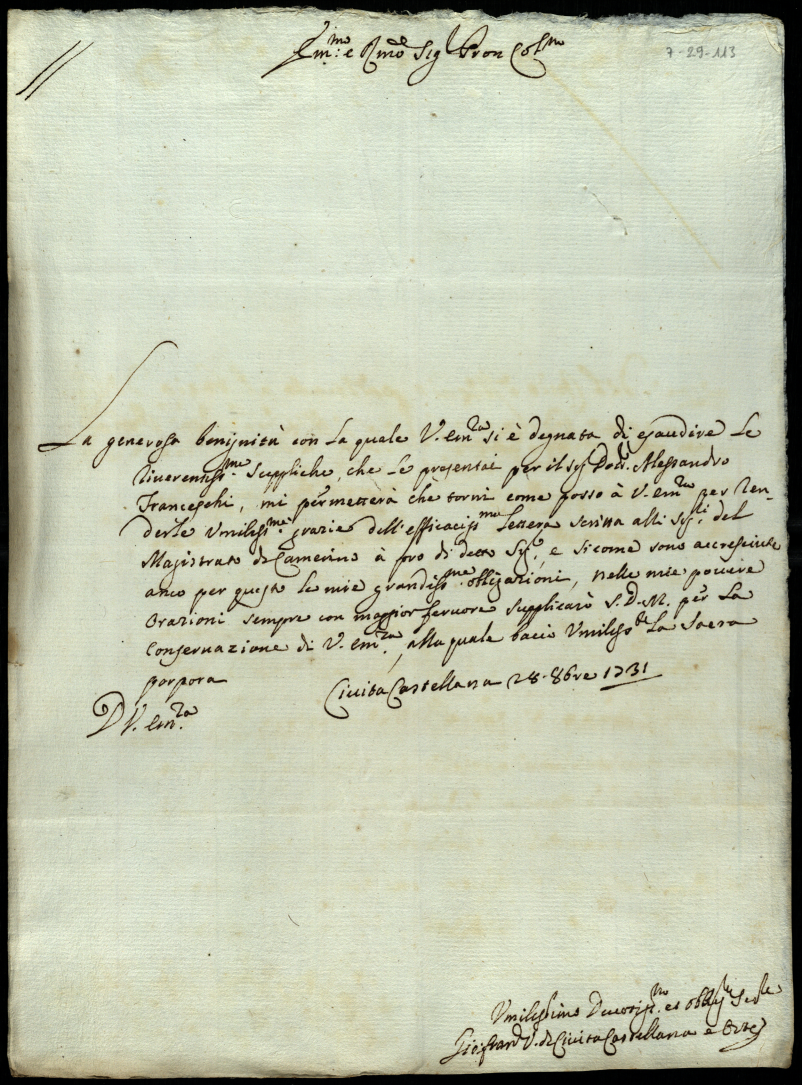 Em.mo e Rmo Sig.r Pron Col.mo
7-29-113
La generosa benignità con la quale V. Em.za si è degnata di esaudire le
riverentiss.me suppliche, che le presentai per il Sig. Dott. Alessandro
Franceschi, mi permetterà che torni come posso à V. Em.za per ren-
derle Umiliss.me grazie dell'efficaciss.ma lettera scritta alli Sig.ri del
Magistrato di Camerino à pro di detto Sig.re, e sicome sono accresciute
anco per questo le mie grandiss.me obligazioni, nelle mie povere
Orazioni sempre con maggior fervore supplicarò S.D.M. per la
Conservazione di V. Em.za, alla quale bacio Umiliss.te La Sacra
porpora
Civita Castellana 28. 8bre 1731
D V. Em.za
Umilissimo Devotiss.mo et obblig.mo Ser.re
Gio: Fran.co V. di Civita Castellana e Orte